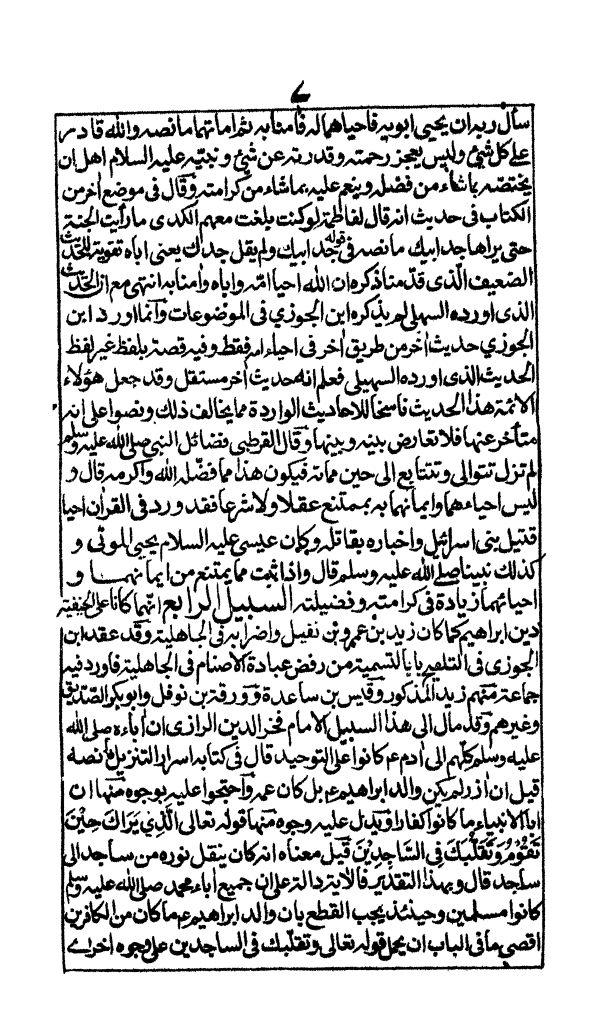 ٧
سأل ربه ان يحيى ابويه فاحياهما له فآمنا به ثم اماتهما ما نصه والله قادر
على كل شئ وليس يعجز رحمته وقدرته عن شئ ونبيه عليه السلام اهل ان
يختصه بما شاء من فضله وينعم عليه بما شاء من كرامته وقال فى موضع اخر من
الكتاب فى حديث انه قال لفاطمة لو كنت بلغت معهم الكدى ما رأيت الجنة
حتى يراها جد ابيك ما نصه فى قوله جد ابيك ولم يقل جدك يعنى اباه تقوية للحديث
الضعيف الذى قدمنا ذكره ان الله احيا امه واباه وامنا به انتهى مع ان الحديث
الذى اورده السهيلى لم يذكره ابن الجوزي فى الموضوعات وانما اورد ابن
الجوزي حديث اخر من طريق اخر فى احياء امه فقط وفيه قصة بلفظ غير لفظ
الحديث الذى اورده السهيلى فعلم انه حديث اخر مستقل وقد جعل هؤلاء
الائمة هذا الحديث ناسخا للاحاديث الواردة مما يخالف ذلك ونصوا على انه
متأخر عنها فلا تعارض بينه وبينها وقال القرطبى فضائل النبى صلى الله عليه وسلم
لم تزل تتوالى وتتتابع الى حين مماته فيكون هذا مما فضله الله واكرمه قال و
ليس احياءهما وايمانهما به بممتنع عقلا ولا شرعا فقد ورد فى القرأن احيا
قتيل بنى اسرائيل واخباره بقاتله وكان عيسى عليه السلام يحيى الموتى و
كذلك نبينا صلى الله عليه وسلم قال واذا ثبت مما يمتنع من ايمانهما و
احيائهما زيادة فى كرامته وفضيلته السبيل الرابع انهما كانا على الحنيفية
دين ابراهيم كما كان زيد بن عمرو بن نفيل واضرابه فى الجاهلية وقد عقد ابن
الجوزى فى التلقيح بابا لتسمية من رفض عبادة الاصنام فى الجاهلية فاورد فيه
جماعة منهم زيد المذكور وقيس بن ساعدة وورقة بن نوفل وابو بكر الصديق
وغيرهم وقد مال الى هذا السبيل الامام فخر الدين الرازى ان اباءه صلى الله
عليه وسلم كلهم الى ادم ع كانوا على التوحيد قال فى كتابه اسرار التنزيل ما نصه
قيل ان ازر لم يكن والد ابراهيم ع بل كان عمه واحتجوا عليه بوجوه منها ان
اباء الانبياء ما كانوا كفارا ويدل عليه وجوه منها قوله تعالى الَّذِي يَرَاكَ حِيْنَ
تَقُوْمُ وَتَقَلُّبَكَ فِى السَّاجِدِيْنَ قيل معناه انه كان ينقل نوره من ساجد الى
ساجد قال وبهذا التقدير فالاية دالة على ان جميع اباء محمد صلى الله عليه وسلم
كانوا مسلمين وحينئذ يجب القطع بان والد ابراهيم ع ما كان من الكافرين
اقصى ما فى الباب ان يحمل قوله تعالى وتقلبك فى الساجدين على وجوه اخرے